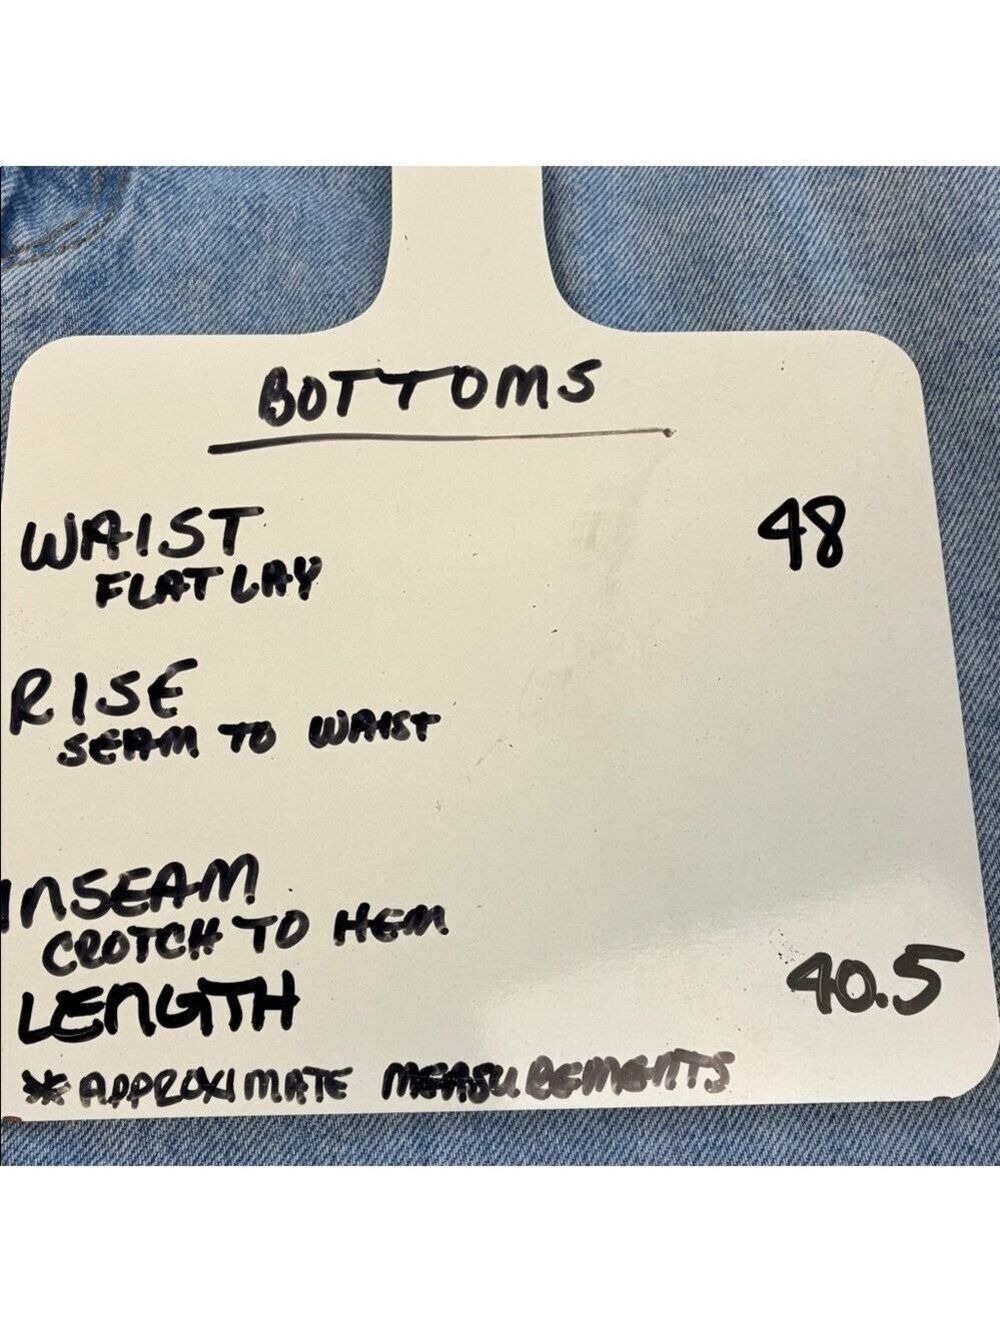 BOTTOMS
WAIST 48
FLAT LAY
RISE
SEAM TO WAIST
INSEAM
CROTCH TO HEM
LENGTH 40.5
* APPROXIMATE MEASUREMENTS